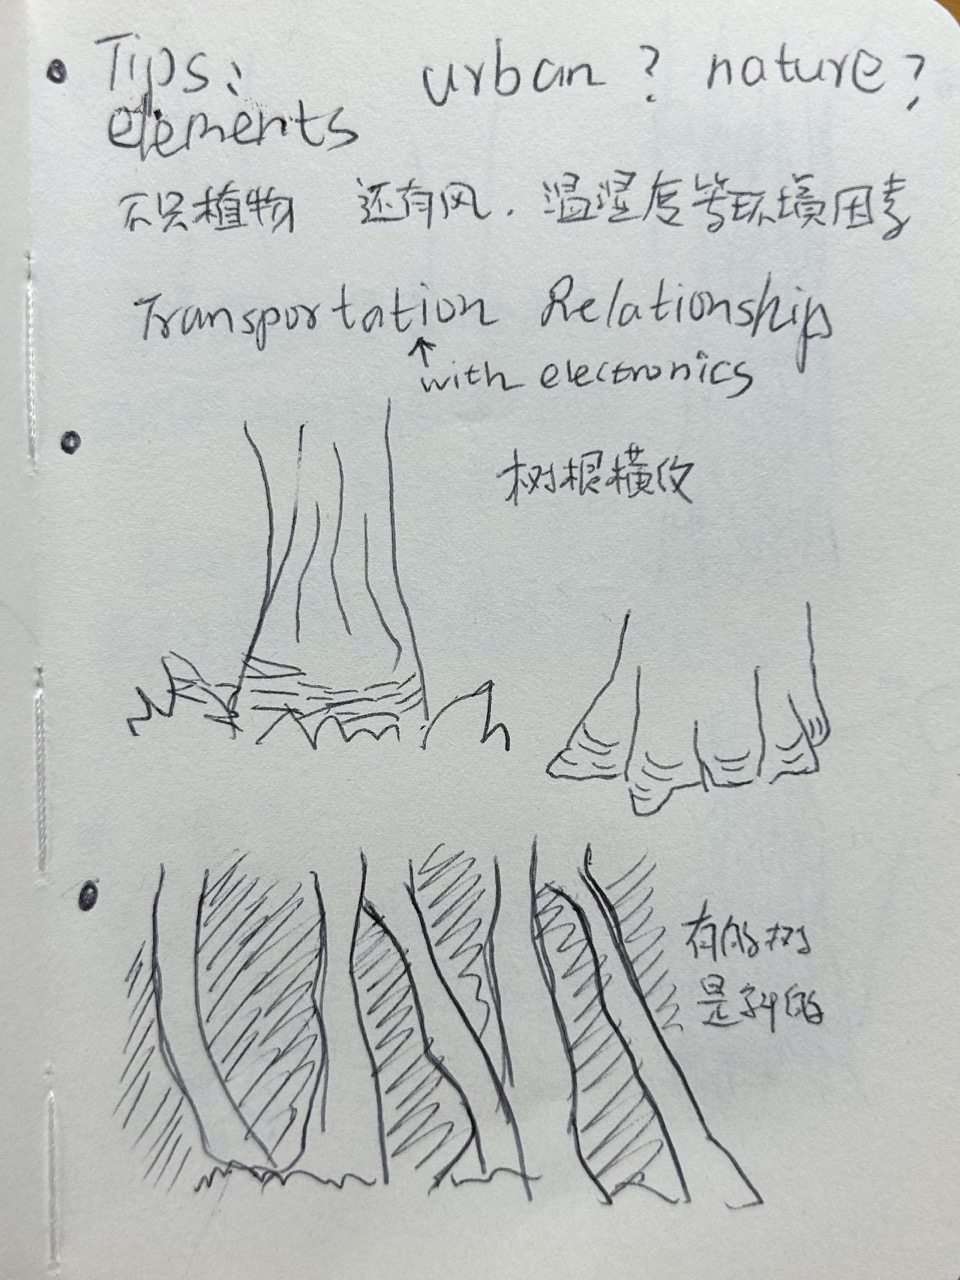 Tips: urban? nature?
elements
不只植物 还有风.温湿度等环境因素
Transportation Relationship
↑
with electronics
树根横纹
有的树
是斜的